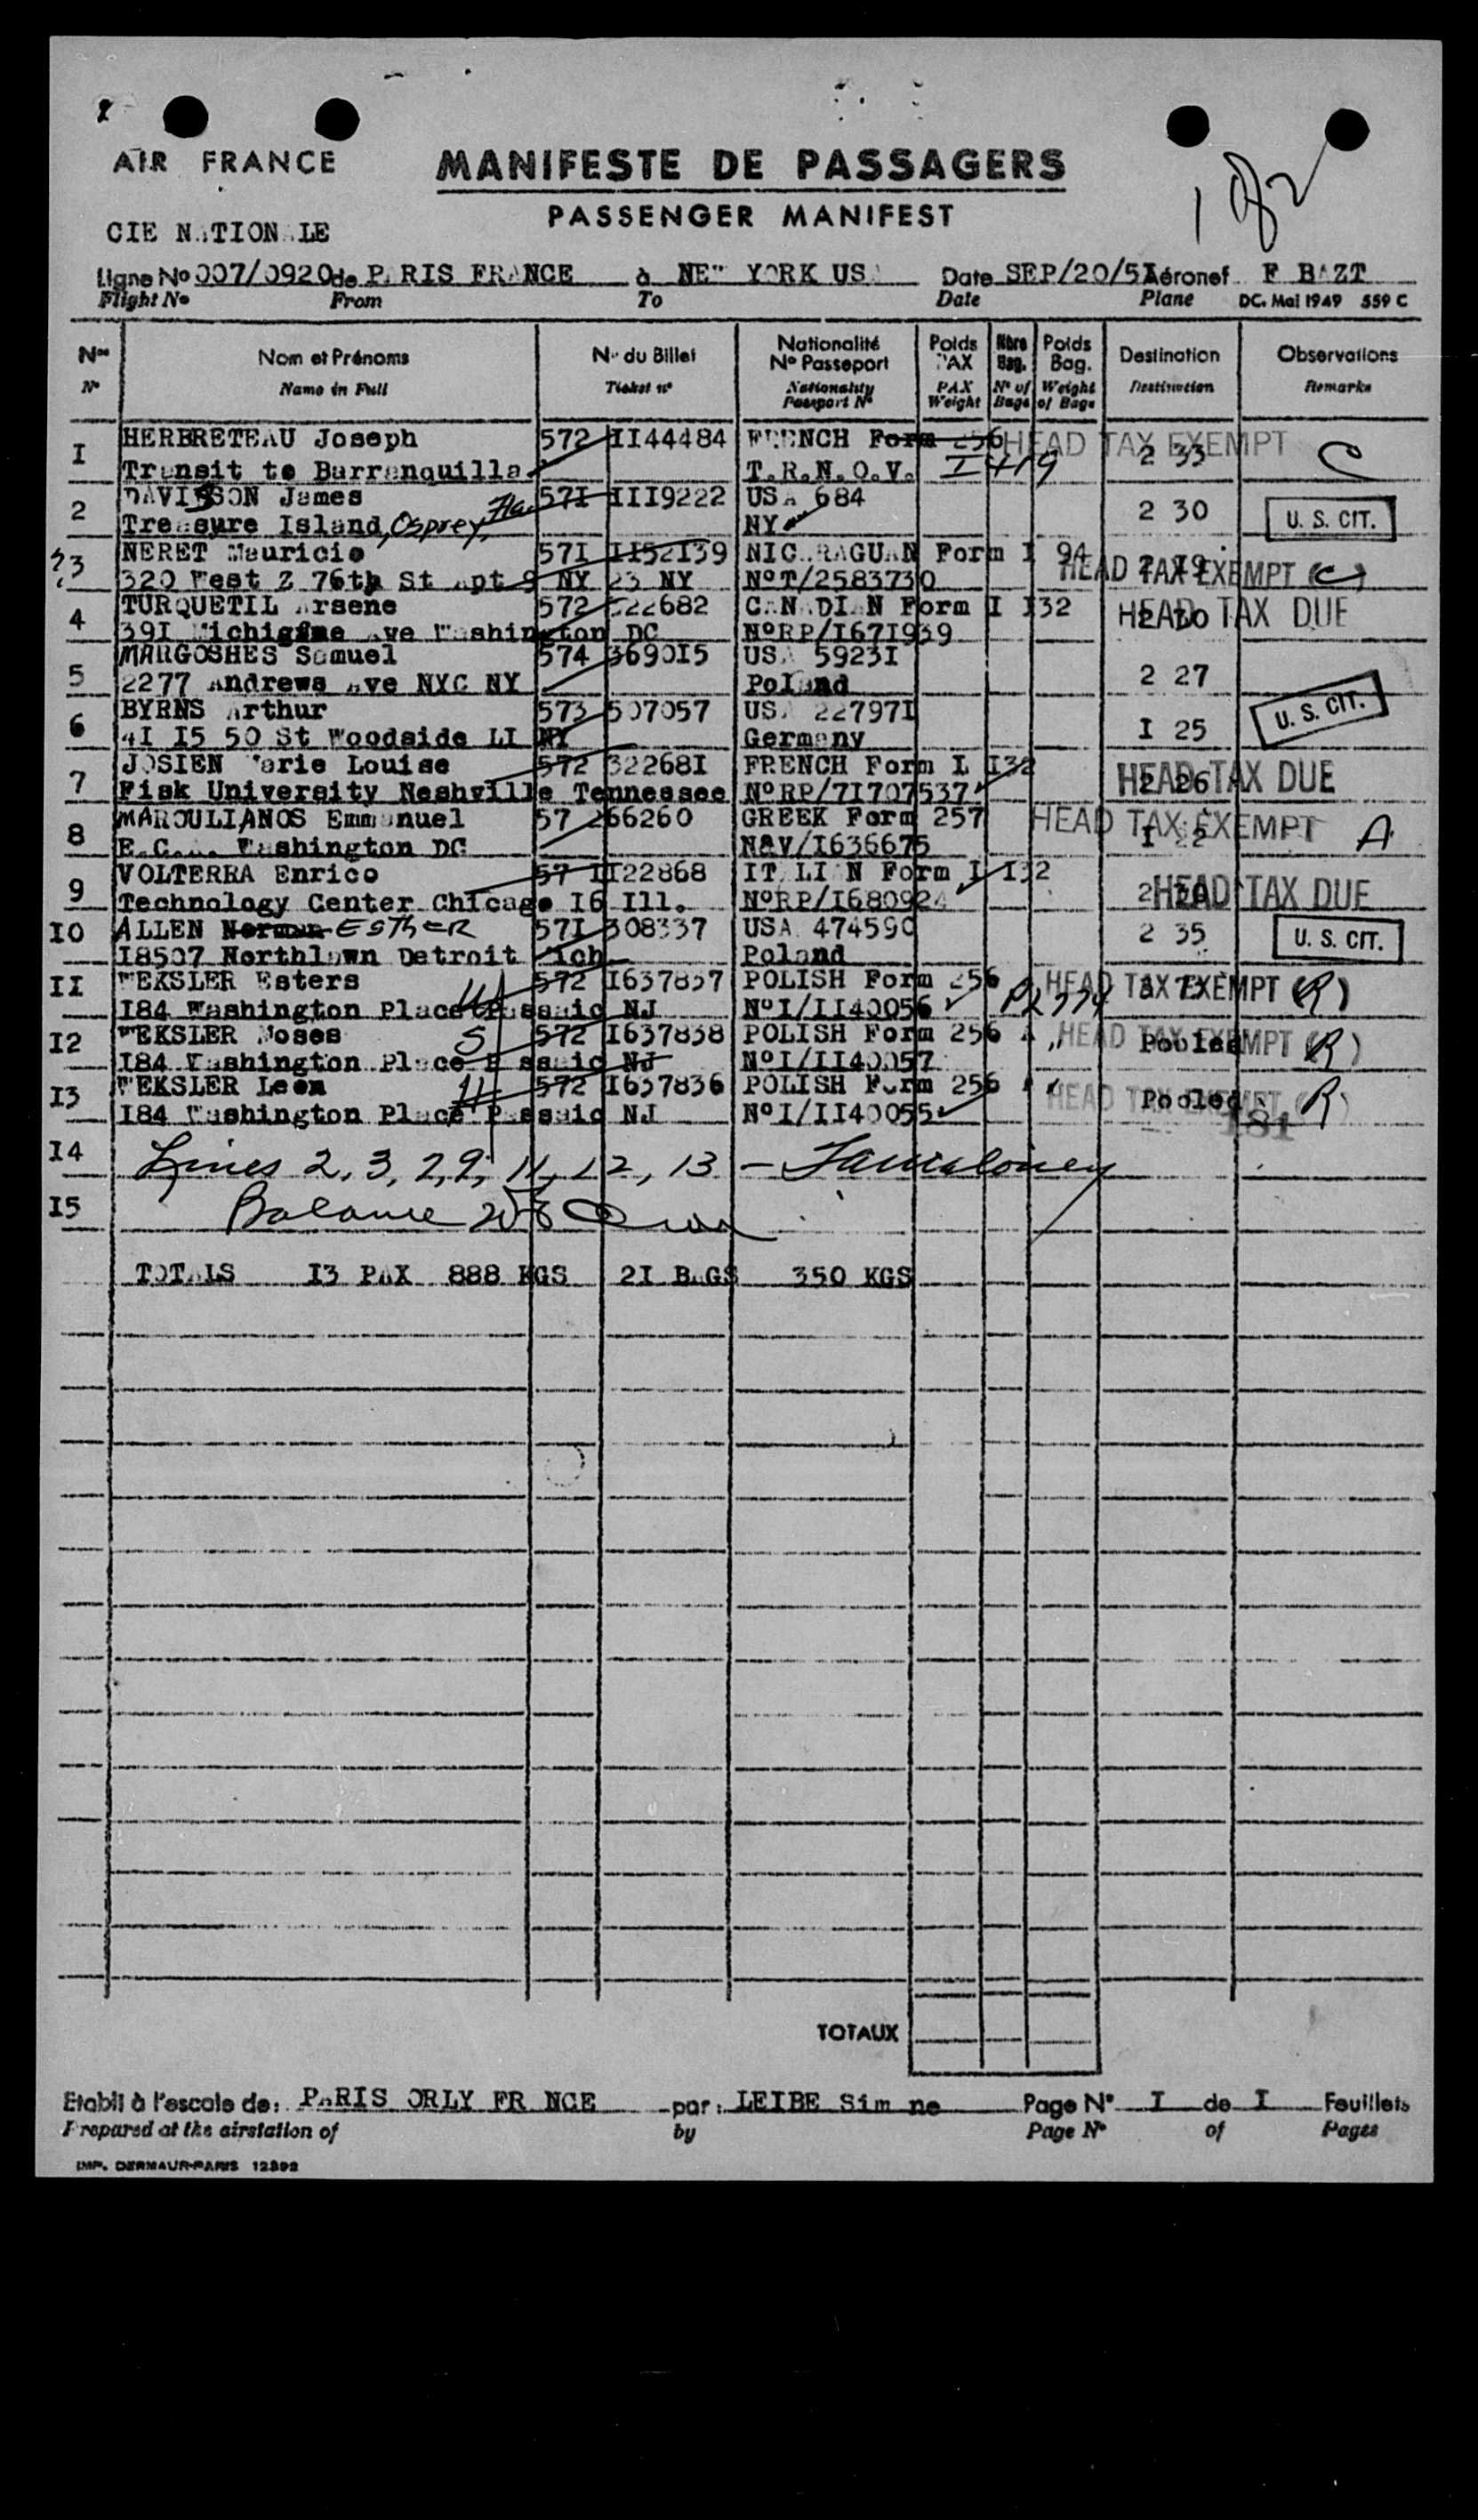 AIR FRANCE
MANIFESTE DE PASSAGERS
PASSENGER MANIFEST
CIE NATIONALE
Ligne No 007/0920 de PARIS FRANCE à NEW YORK USA Date SEP/20/5I Aéronef F BAZT
Flight No From To Date Plane DC. Mai 1949 559 C
Nos Nom et Prénoms No du Billet Nationalité No Passeport Poids PAX Nbre Bag. Poids Bag. Destination Observations
No Name in Full Ticket no Nationality Passport No PAX Weight No of Bags Weight of Bags Destination Remarks
I HERBRETEAU Joseph 572 II44484 FRENCH Form 256 HEAD TAX EXEMPT 2 33 C
Transit to Barranquilla T.R.N.O.V. I 419
2 DAVISSON James 57I III9222 USA 684 2 30 U. S. CIT.
Treasure Island, Osprey, Fla. NY
3 NERET Mauricio 57I II52I39 NICARAGUAN Form I 94 HEAD TAX EXEMPT (C)
320 West Z 76th St Apt 9 NY 23 NY NoT/2583730
4 TURQUETIL Arsene 572 322682 CANADIAN Form I I32 HEAD TAX DUE
39I Michigane Ave Washington DC NoRP/I67I939
5 MARGOSHES Samuel 574 3690I5 USA 5923I 2 27
2277 Andrews Ave NYC NY Poland
6 BYRNS Arthur 573 507057 USA 22797I I 25 U. S. CIT.
4I I5 50 St Woodside LI NY Germany
7 JOSIEN Marie Louise 572 32268I FRENCH Form I I32 2 26 HEAD TAX DUE
Fisk University Nashville Tennessee NoRP/7I707537
8 MAROULIANOS Emmanuel 57 266260 GREEK Form 257 HEAD TAX EXEMPT I 22 A
E.C.A. Washington DC NAV/I636675
9 VOLTERRA Enrico 57 II22868 ITALIAN Form I I32 HEAD TAX DUE
Technology Center Chicago I6 Ill. NoRP/I680924
IO ALLEN Norman ESTHER 57I 308337 USA 474590 2 35 U. S. CIT.
I8507 Northlawn Detroit Mich Poland
II WEKSLER Esters 572 I637837 POLISH Form 256 PL 774 HEAD TAX EXEMPT (R)
I84 Washington Place Passaic NJ NoI/II40056
I2 WEKSLER Moses 5 572 I637838 POLISH Form 256 " HEAD TAX EXEMPT Pooled (R)
I84 Washington Place Passaic NJ NoI/II40057
I3 WEKSLER Leon 572 I637836 POLISH Form 256 HEAD TAX EXEMPT Pooled R
I84 Washington Place Passaic NJ NoI/II40055 181
I4 Lines 2, 3, 7, 9, 11, 12, 13 -
I5 Balance
TOTALS I3 PAX 888 KGS 2I BAGS 350 KGS
TOTAUX
Etabli à l'escale de: PARIS ORLY FRANCE par: LEIBE Simone Page No I de I Feuillets
Prepared at the airstation of by Page No of Pages
IMP. DERMAUR-PARIS 12392